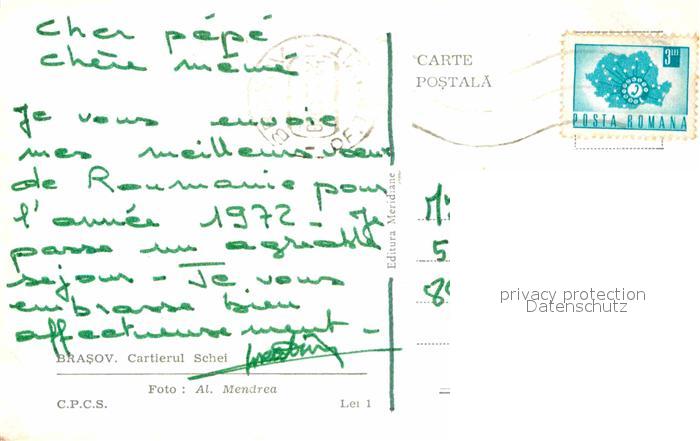 Cher pépé
chère mémé
Je vous envoie
mes meilleurs vœux
de Roumanie pour
l'année 1972 - Je
passe un agréable
sejour - Je vous
embrasse bien
affectueusement -
BRAȘOV. Cartierul Schei
Foto : Al. Mendrea
C.P.C.S. Lei 1
Editura Meridiane
CARTE
POȘTALĂ
3 LEI
POSTA ROMANA
5
privacy protection
Datenschutz